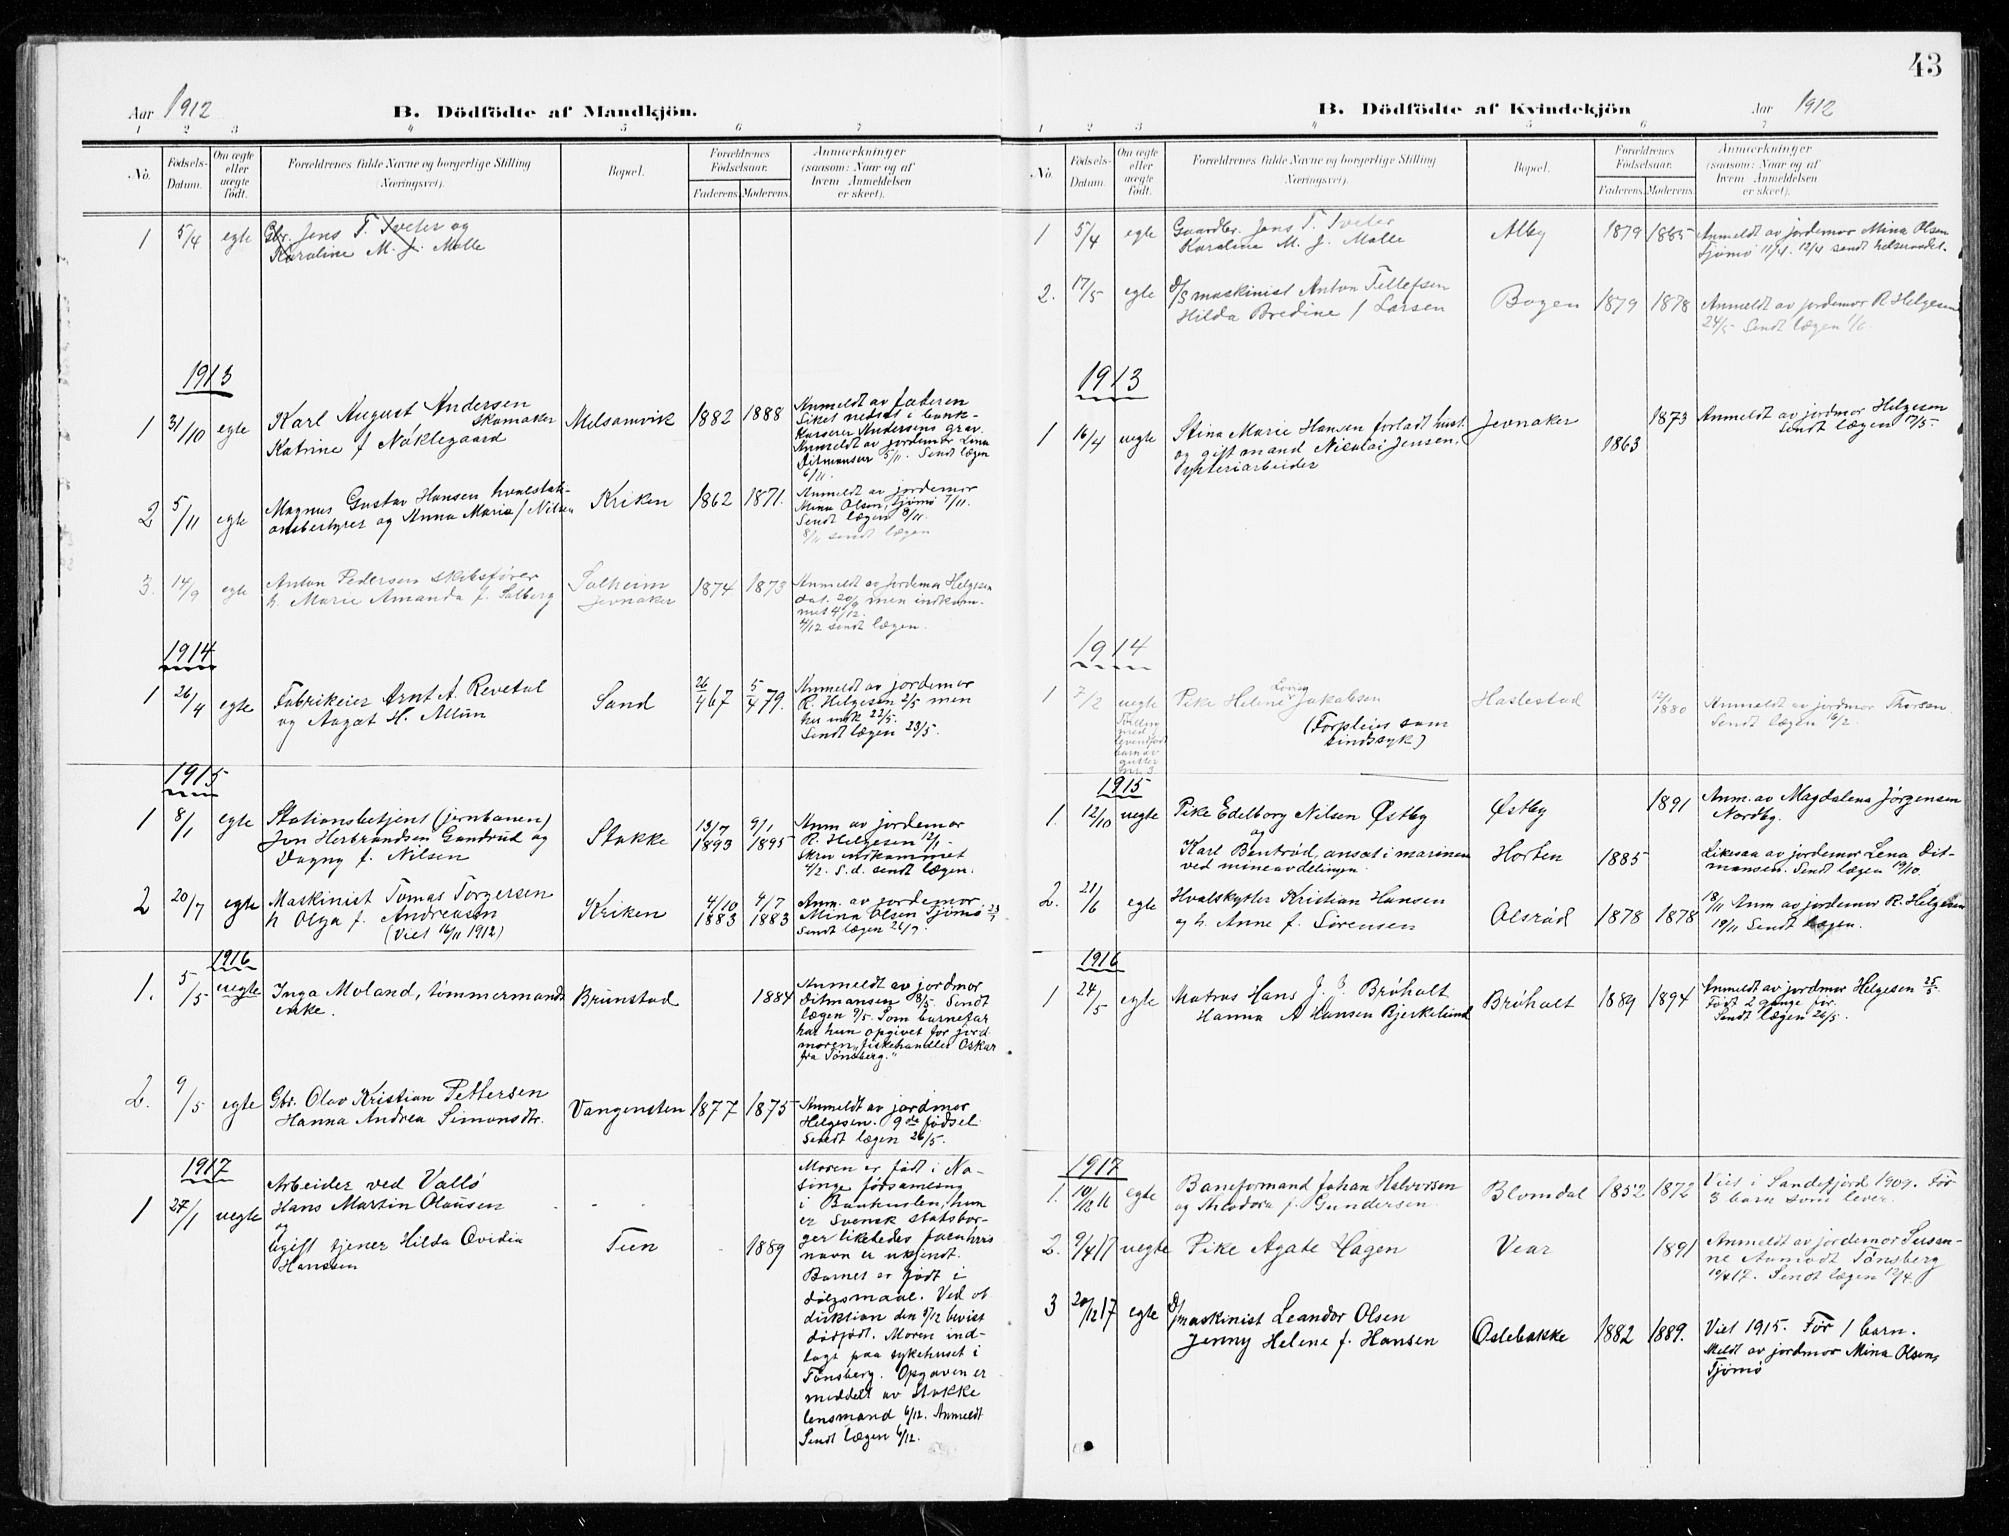 43
Aar 1912
B. Dödfödte af Mandkjön.
1 2 3 4 5 6 7
No.
Födsels-Datum.
Om ægte eller uægte født.
Forældrenes fulde Navne og borgerlige Stilling (Næringsvei).
Bopæl.
Forældrenes Födselsaar.
Faderens. Moderens.
Anmærkninger (saasom: Naar og af hvem Anmeldelsen er skeet).
1 5/4 egte Gbr. Jens T. Tveter og
Karoline M. J. Molle
1913
1 31/10 egte Karl August Andersen
Skomaker
Katrine f Nøklegaard
Melsomvik 1882 1888
Anmeldt av faderen
Liket nedsat i bank-
kasserer Andersens grav.
Anmeldt av jordemor Lina
Ditmansen 5/11. Sendt lægen
6/11.
2 5/11 egte Magnus Gustav Hansen hvalstati-
onsbestyrer og Anna Marie f Nilsen
Kriken 1862 1871.
Anmeldt av jordemor
Mina Olsen, Tjømø 7/11.
Sendt lægen 8/11.
8/11 sendt lægen
3. 14/9 egte Anton Pedersen skibsfører
h. Marie Amanda f. Solberg
Solheim
Jevnaker
1874 1873
Anmeldt av jordemor Helgesen
dat. 20/9 men indkom-
met 4/12.
4/12 sendt lægen.
1914
1 26/4 egte Fabrikeier Arnt A. Revetal
og Aagot H. Allum
Sand 26/4 67 5/4 79.
Anmeldt av jordemor
R. Helgesen 2/5 men
her indk 22/5.
Sendt lægen 23/5.
1915
1 8/1 egte Stationsbetjent (jernbanen)
Jon Herbrandsen Gandrud og
Dagny f. Nilsen
Stokke 13/7 1893 9/1 1895
Anm av jordemor
R. Helgesen 12/1
Skriv indkommet
4/2. S.d. sendt lægen.
2 20/7 egte Maskinist Tomas Torgersen
h Olga f. Andreasen
(Viet 16/11 1912)
Kriken 4/10 1883 4/7 1883
Anm. av jordemor
Mina Olsen Tjømø 23/7
Sendt lægen 26/7.
1916
1. 5/5 uegte Inga Moland, tømmermands
enke.
Brunstad 1884
Anmeldt av jordmor
Ditmansen 8/5. Sendt
lægen 9/5. Som barnefar
har hun opgivet for jord
moren „fiskehandler Oskar
fra Tønsberg."
2. 9/5 egte Gbr. Olav Kristian Pettersen
Hanna Andrea Simonsdtr.
Vangensten 1877 1875
Anmeldt av jordmor
Helgesen. 9de fødsel
Sendt lægen 26/5.
1917
1 27/1 uegte Arbeider ved Vallø
Hans Martin Olausen
og
ugift tjener Hilda Ovidia
Hanssen
Tuen 1889
Moren er født i Na-
singe forsamling
i Bauhuslen, hun
er Svensk statsbor-
ger likeledes
navn er ukjendt.
Barnet er født i
dølgsmaal. Ved ob
duktion den 5/12 bevist
dødfødt. Moren ind-
lagt paa sykehuset i
Tønsberg. Opgaven er
meddelt av Stokke
lensmand 6/12. Anmeldt
Sendt lægen 6/12.
B. Dödfödte af Kvindekjön
Aar 1912
1 2 3 4 5 6 7
No.
Födsels-Datum.
Om ægte eller uægte født.
Forældrenes fulde Navne og borgerlige Stilling (Næringsvei).
Bopæl.
Forældrenes Födselsaar.
Faderens. Moderens.
Anmærkninger (saasom: Naar og af hvem Anmeldelsen er skeet).
1 5/4 egte Gaardbr. Jens T. Tveter
Karoline M. J. Molle
Alby 1879 1885
Anmeldt av jordemor Mina Olsen
Tjømø 11/4. 12/4 sendt helseraadet.
2. 17/5 egte D/S maskinist Anton Tellefsen
Hilda Bredine f Larsen
Bogen 1879 1878
Anmeldt av jordemor R. Helgesen
24/5 Sendt lægen 1/6.
1913
1 16/4 uegte Stina Marie Hansen forladt hust.
og gift mand Nicolai Jensen,
Jevnaker 1863 1873
Anmeldt av jordmor Helgesen
Sendt lægen 17/5
1914
1 7/2 uegte Pike Helene Lovisa Jakobsen
(Forpleies som
sindssyk)
Haslestad 12/12 1880
Anmeldt av jordemor Thorsen.
Sendt lægen 16/2.
Tvilling
med
levendfødt
barn av
gutter
nr. 3
1915
1. 12/10 uegte Pike Edelborg Nilsen Østby
og
Karl Bentrød, ansat i marinen
ved mineavdelingen.
Østby 1891
Horten 1885
Anm. av Magdalena Jørgensen
Nordby.
Likesaa av jordemor Lena Dit-
mansen. Sendt lægen 19/10.
2. 21/6 egte Hvalskytter Kristian Hansen
og h. Anne f. Sørensen
Olsrød 1878 1878
18/11 Anm av jordemor R. Helgesen
19/11 Sendt lægen.
1916
1 24/5 egte Matros Hans J. J. Brøholt
Hanna A Hansen Bjerkelund
Brøholt 1889 1894
Anmeldt av jordmor Helgesen 25/5.
Født 2 gange før.
Sendt lægen 26/5.
1917
1. 10/12 16 egte Baneformand Johan Halvorsen
og Theodora f. Gundersen
Blomdal 1852 1872
Viet i Sandefjord 1909. Før
3 barn som lever.
2. 9/4 17 uegte Pike Agate Hagen
Vear 1891
Anmeldt av jordemor Susan-
ne Aamodt Tønsberg
10/4 17. Sendt lægen 12/4.
3 20/12 17 egte D/maskinist Leander Olsen
Jenny Helene f. Hansen
Oslebakke 1882 1889.
Viet 1915. Før 1 barn.
Meldt av jordmor Mina Olsen,
Tjømø